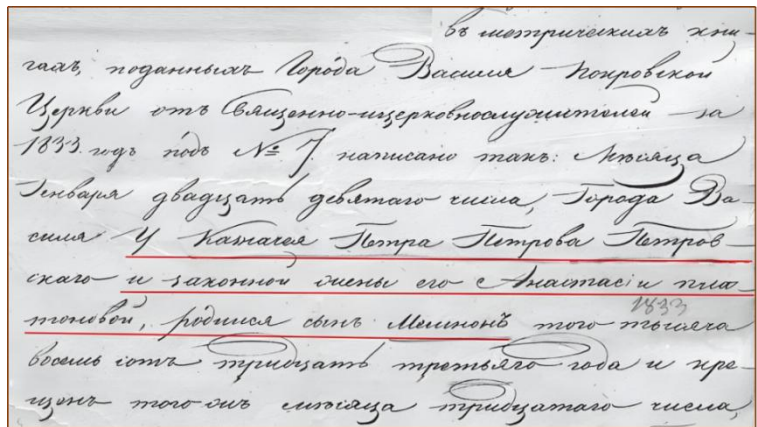 въ метрическихъ кни-
гахъ, поданныхъ Города Василя Покровской
Церкви отъ Священно-ицерковнослужителей за
1833. годъ подъ № 7. написано такъ: Мѣсяца
Генваря двадцать девятаго числа, Города Ва-
силя У Казначея Петра Петрова Петров-
скаго и законной жены его Анастасіи Пла-
тоновой, родился сынъ Мемнонъ того тысяча
1833
восемь сотъ тридцать третьяго года и кре-
щенъ того-жъ мѣсяца тридцатаго числа,